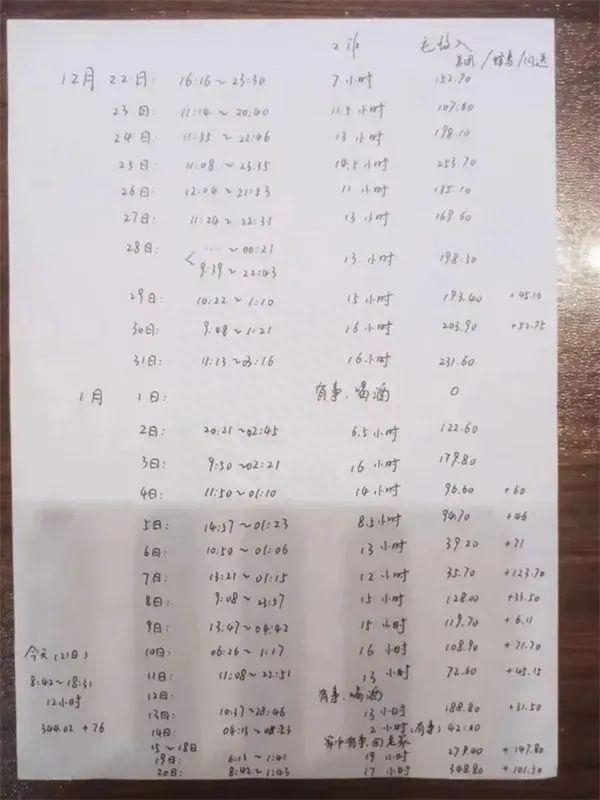 工作 毛收入
美团/蜂鸟/闪送
12月 22日: 16:16~23:30 7小时 152.70
23日: 11:14~20:40 11.5小时 107.60
24日: 11:55~22:46 13小时 198.10
25日: 11:08~23:35 14.5小时 253.70
26日: 12:04~21:53 11小时 135.10
27日: 11:24~22:31 13小时 169.60
28日: < ...~00:21
9:39~22:43 13小时 198.30
29日: 10:22~1:10 15小时 193.40 +45.10
30日: 9:48~1:21 16小时 203.90 +52.75
31日: 9:13~03:16 16小时 231.60
1月 1日: 有事、喝酒 0
2日: 20:21~02:45 6.5小时 122.60
3日: 9:50~02:21 16小时 179.80
4日: 11:50~01:10 14小时 96.60 +60
5日: 14:37~01:23 8.5小时 94.70 +46
6日: 10:50~01:06 13小时 39.20 +71
7日: 13:21~01:15 12小时 35.70 +123.70
8日: 9:08~23:57 15小时 128.00 +33.50
9日: 13:47~04:42 15小时 119.70 +6.11
10日: 06:26~1:17 16小时 108.90 +71.70
11日: 11:08~22:51 13小时 72.60 +45.15
12日: 有事、喝酒
13日: 10:37~23:46 13小时 188.80 +31.50
14日: 04:13~08:23 2小时(有事) 42.00
15~18日 家中有事,回老家
19日: 6:13~1:41 19小时 279.40 +147.80
20日: 8:42~1:43 17小时 348.80 +101.50
今天(21日)
8:42~18:31
12小时
344.02+76